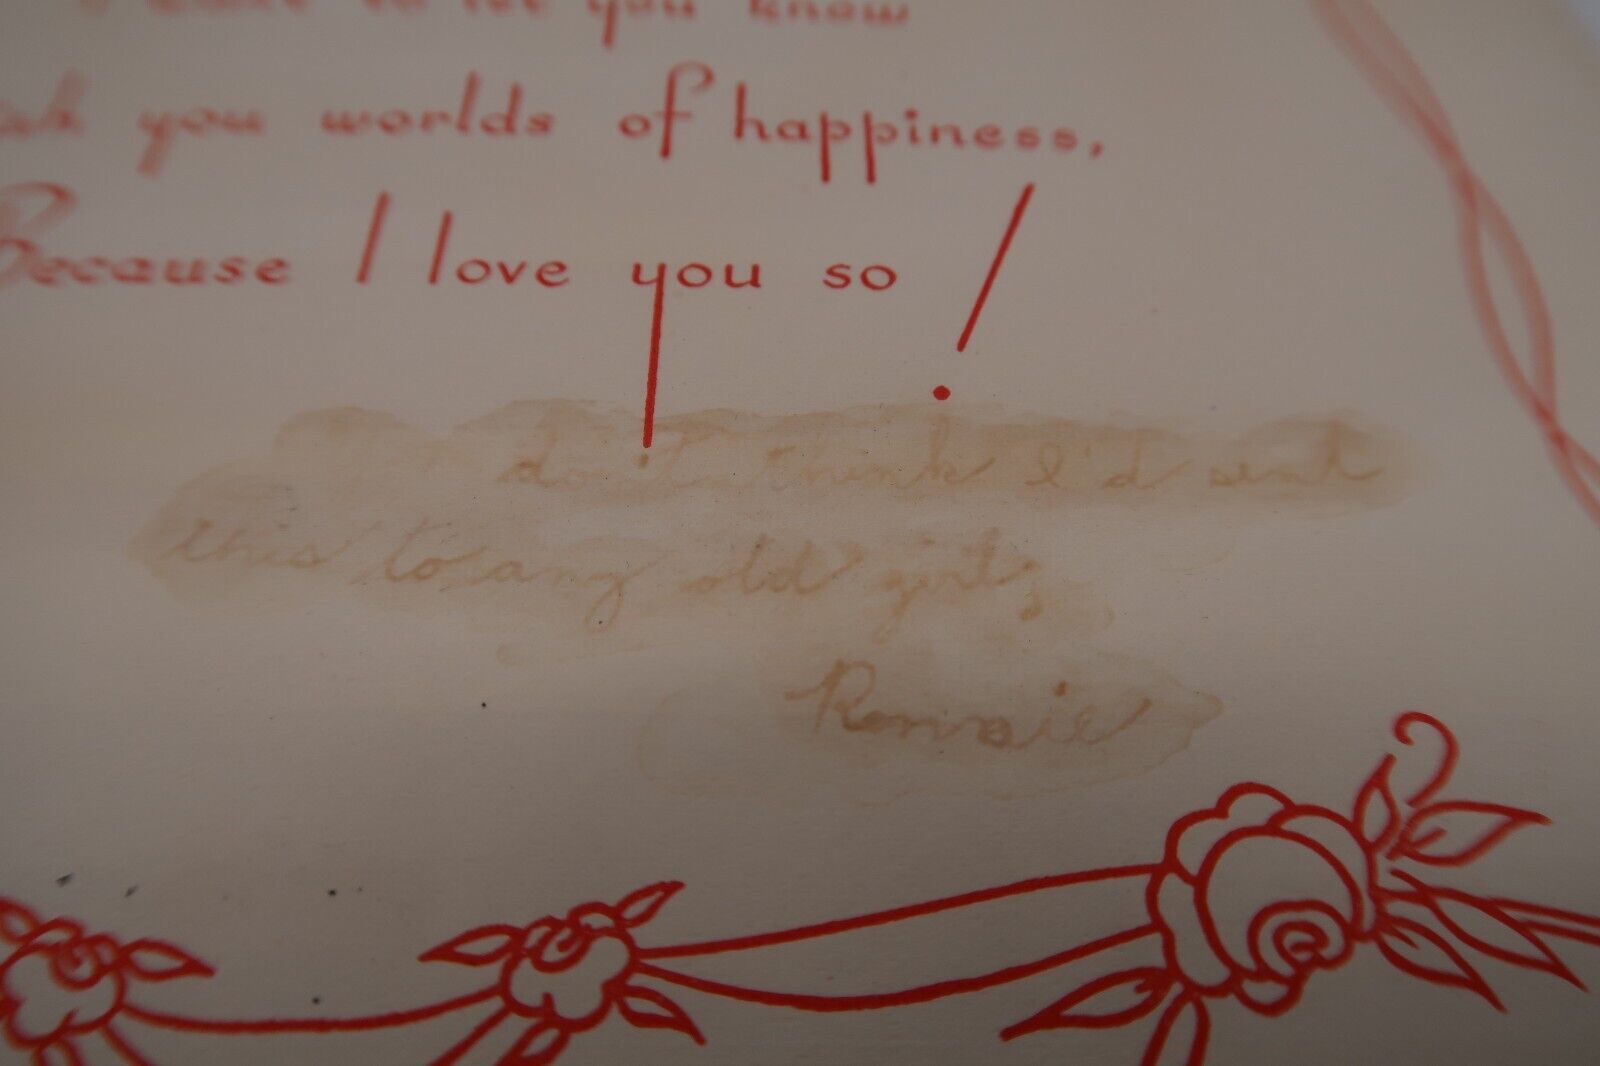 to let you know
you worlds of happiness,
Because I love you so!
don't think I'd sent
this to any old girl;
Ronnie